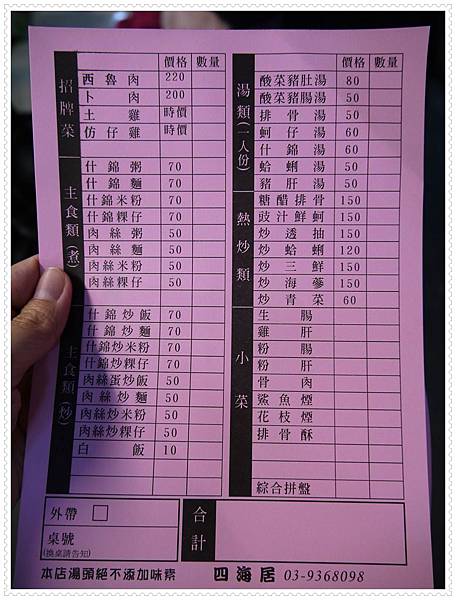 招牌菜
價格 數量
西魯肉 220
卜肉 200
土雞 時價
仿仔雞 時價
主食類(煮)
什錦粥 70
什錦麵 70
什錦米粉 70
什錦粿仔 70
肉絲粥 50
肉絲麵 50
肉絲米粉 50
肉絲粿仔 50
主食類(炒)
什錦炒飯 70
什錦炒麵 70
什錦炒米粉 70
什錦炒粿仔 70
肉絲蛋炒飯 50
肉絲炒麵 50
肉絲炒米粉 50
肉絲炒粿仔 50
白飯 10
湯類(一人份)
價格 數量
酸菜豬肚湯 80
酸菜豬腸湯 50
排骨湯 50
蚵仔湯 60
什錦湯 60
蛤蜊湯 50
豬肝湯 50
熱炒類
糖醋排骨 150
豉汁鮮蚵 150
炒透抽 150
炒蛤蜊 120
炒三鮮 150
炒海蔘 150
炒青菜 60
小菜
生腸
雞肝
粉腸
粉肝
骨肉
鯊魚煙
花枝煙
排骨酥
綜合拼盤
外帶 □
桌號
(換桌請告知)
合計
本店湯頭絕不添加味素 四海居 03-9368098